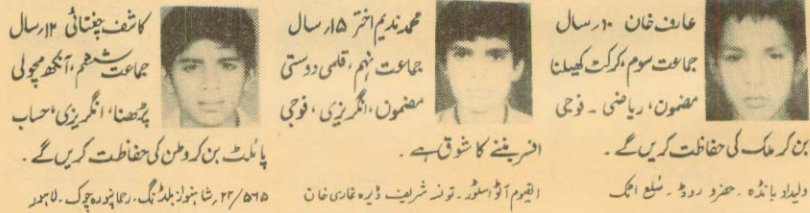 عارف خان ۱۰ر سال
جماعت سوم، کرکٹ کھیلنا
مضمون، ریاضی ۔ فوجی
بن کر ملک کی حفاظت کریں گے ۔
ولیداد بانڈہ ۔ حضرو روڈ ۔ ضلع اٹک
محمد ندیم اختر ۱۵ر سال
جماعت نہم، قلمی دوستی
مضمون، انگریزی، فوجی
افسر بننے کا شوق ہے ۔
القیوم آٹو اسٹور ۔ تونسہ شریف ڈیرہ غازی خان
کاشف چغتائی ۱۲ر سال
جماعت ششم، آنکھ مچولی
پڑھنا، انگریزی، حساب
پائلٹ بن کر وطن کی حفاظت کریں گے ۔
۲۲/۵۶۵ شاہنواز بلڈنگ ۔ رحمانپورہ چوک ۔ لاہور